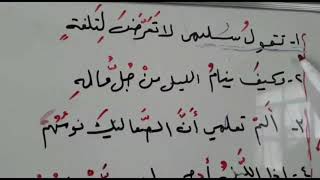 ١- تقولُ سليمى لا تَعَرَّضْ لِتَلفةٍ
٢- وكيفَ ينامُ الليلَ مَنْ جُلُّ مالِهِ
٣- أَلَمْ تعلمي أَنَّ الصَّعاليكَ نومُهُمْ
٤- إذا الليلُ